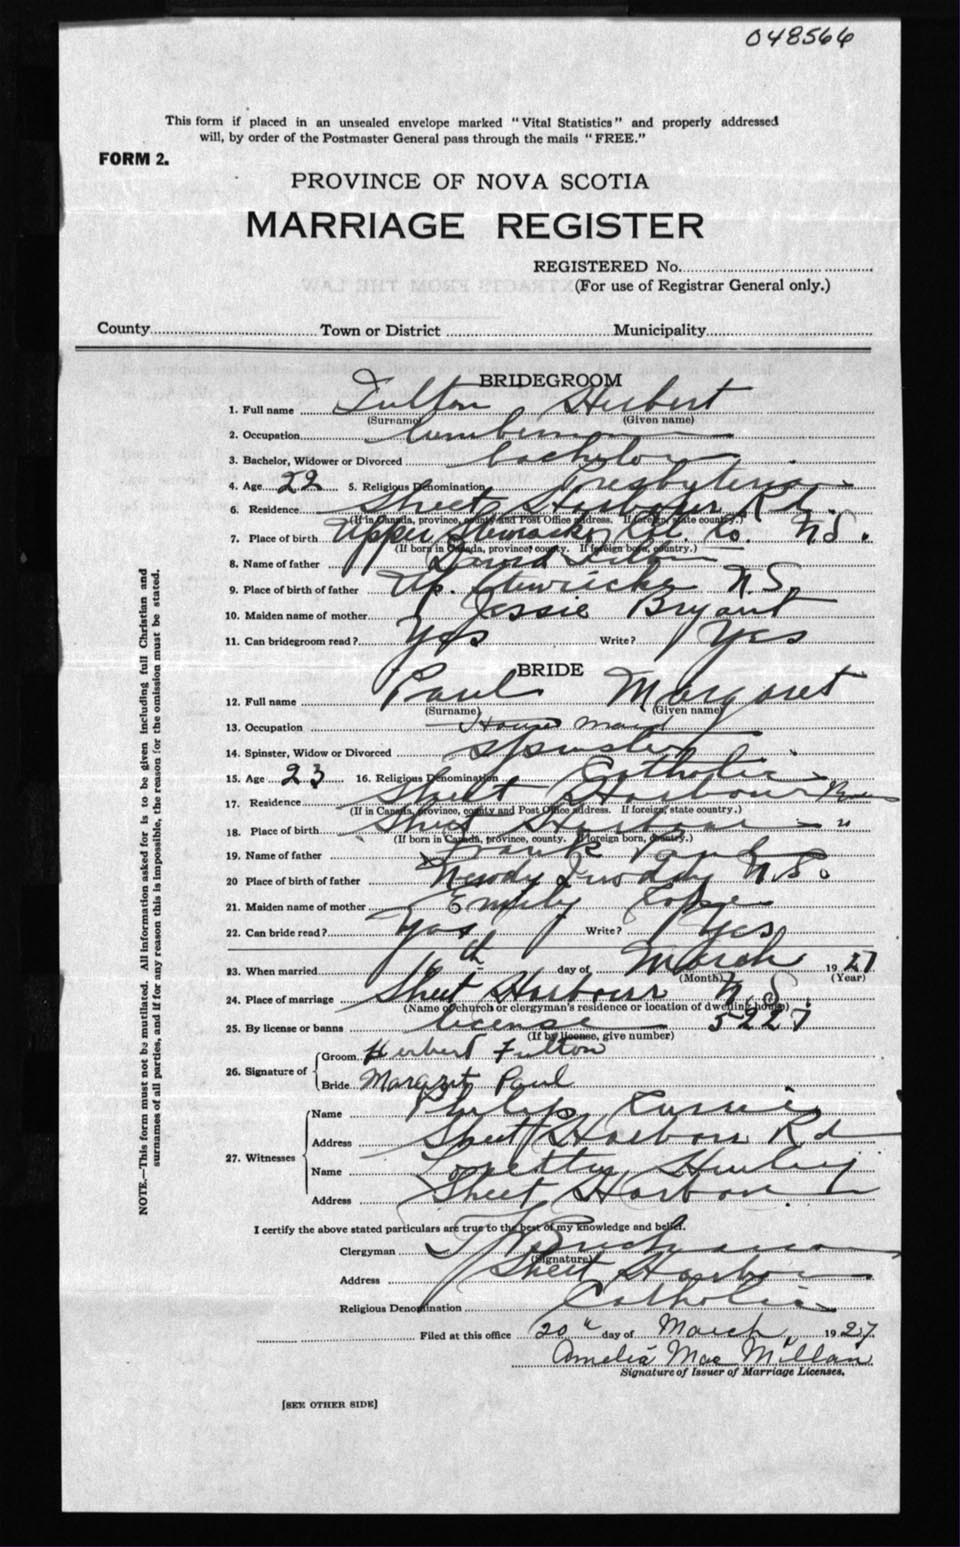 048566
This form if placed in an unsealed envelope marked "Vital Statistics" and properly addressed
will, by order of the Postmaster General pass through the mails "FREE."
FORM 2.
PROVINCE OF NOVA SCOTIA
MARRIAGE REGISTER
REGISTERED No.
(For use of Registrar General only.)
County Town or District Municipality
BRIDEGROOM
1. Full name Fulton Herbert
(Surname) (Given name)
2. Occupation lumberman
3. Bachelor, Widower or Divorced bachelor
4. Age 22 5. Religious Denomination Presbyterian
6. Residence Sheet Harbour Rd.
(If in Canada, province, county and Post Office address. If foreign, state country.)
7. Place of birth Upper Stewiacke, Col. Co. N.S.
(If born in Canada, province, county. If foreign born, country.)
8. Name of father Fulton
9. Place of birth of father Up. Stewiacke N.S.
10. Maiden name of mother Jessie Bryant
11. Can bridegroom read? Yes Write? Yes
BRIDE
12. Full name Paul Margaret
(Surname) (Given name)
13. Occupation House Maid
14. Spinster, Widow or Divorced spinster
15. Age 23 16. Religious Denomination Catholic
17. Residence Sheet Harbour
(If in Canada, province, county and Post Office address. If foreign, state country.)
18. Place of birth Sheet Harbour "
(If born in Canada, province, county. If foreign born, country.)
19. Name of father Frank Paul
20 Place of birth of father N.S.
21. Maiden name of mother Emily Cope
22. Can bride read? Yes Write? Yes
23. When married 16th day of March 1927
(Month) (Year)
24. Place of marriage Sheet Harbour N.S.
(Name of church or clergyman's residence or location of dwelling house)
25. By license or banns license 5227
(If by license, give number)
26. Signature of Groom Herbert Fulton
Bride Margret Paul
27. Witnesses Name Philip
Address Sheet Harbour Rd
Name Loretta Hurley
Address Sheet Harbour
I certify the above stated particulars are true to the best of my knowledge and belief.
Clergyman
(Signature)
Address Sheet Harbour
Religious Denomination Catholic
Filed at this office 20" day of March 1927.
Amelia MacMillan
Signature of Issuer of Marriage Licenses.
[SEE OTHER SIDE]
NOTE.—This form must not be mutilated. All information asked for is to be given including full Christian and
surnames of all parties, and if for any reason this is impossible, the reason for the omission must be stated.